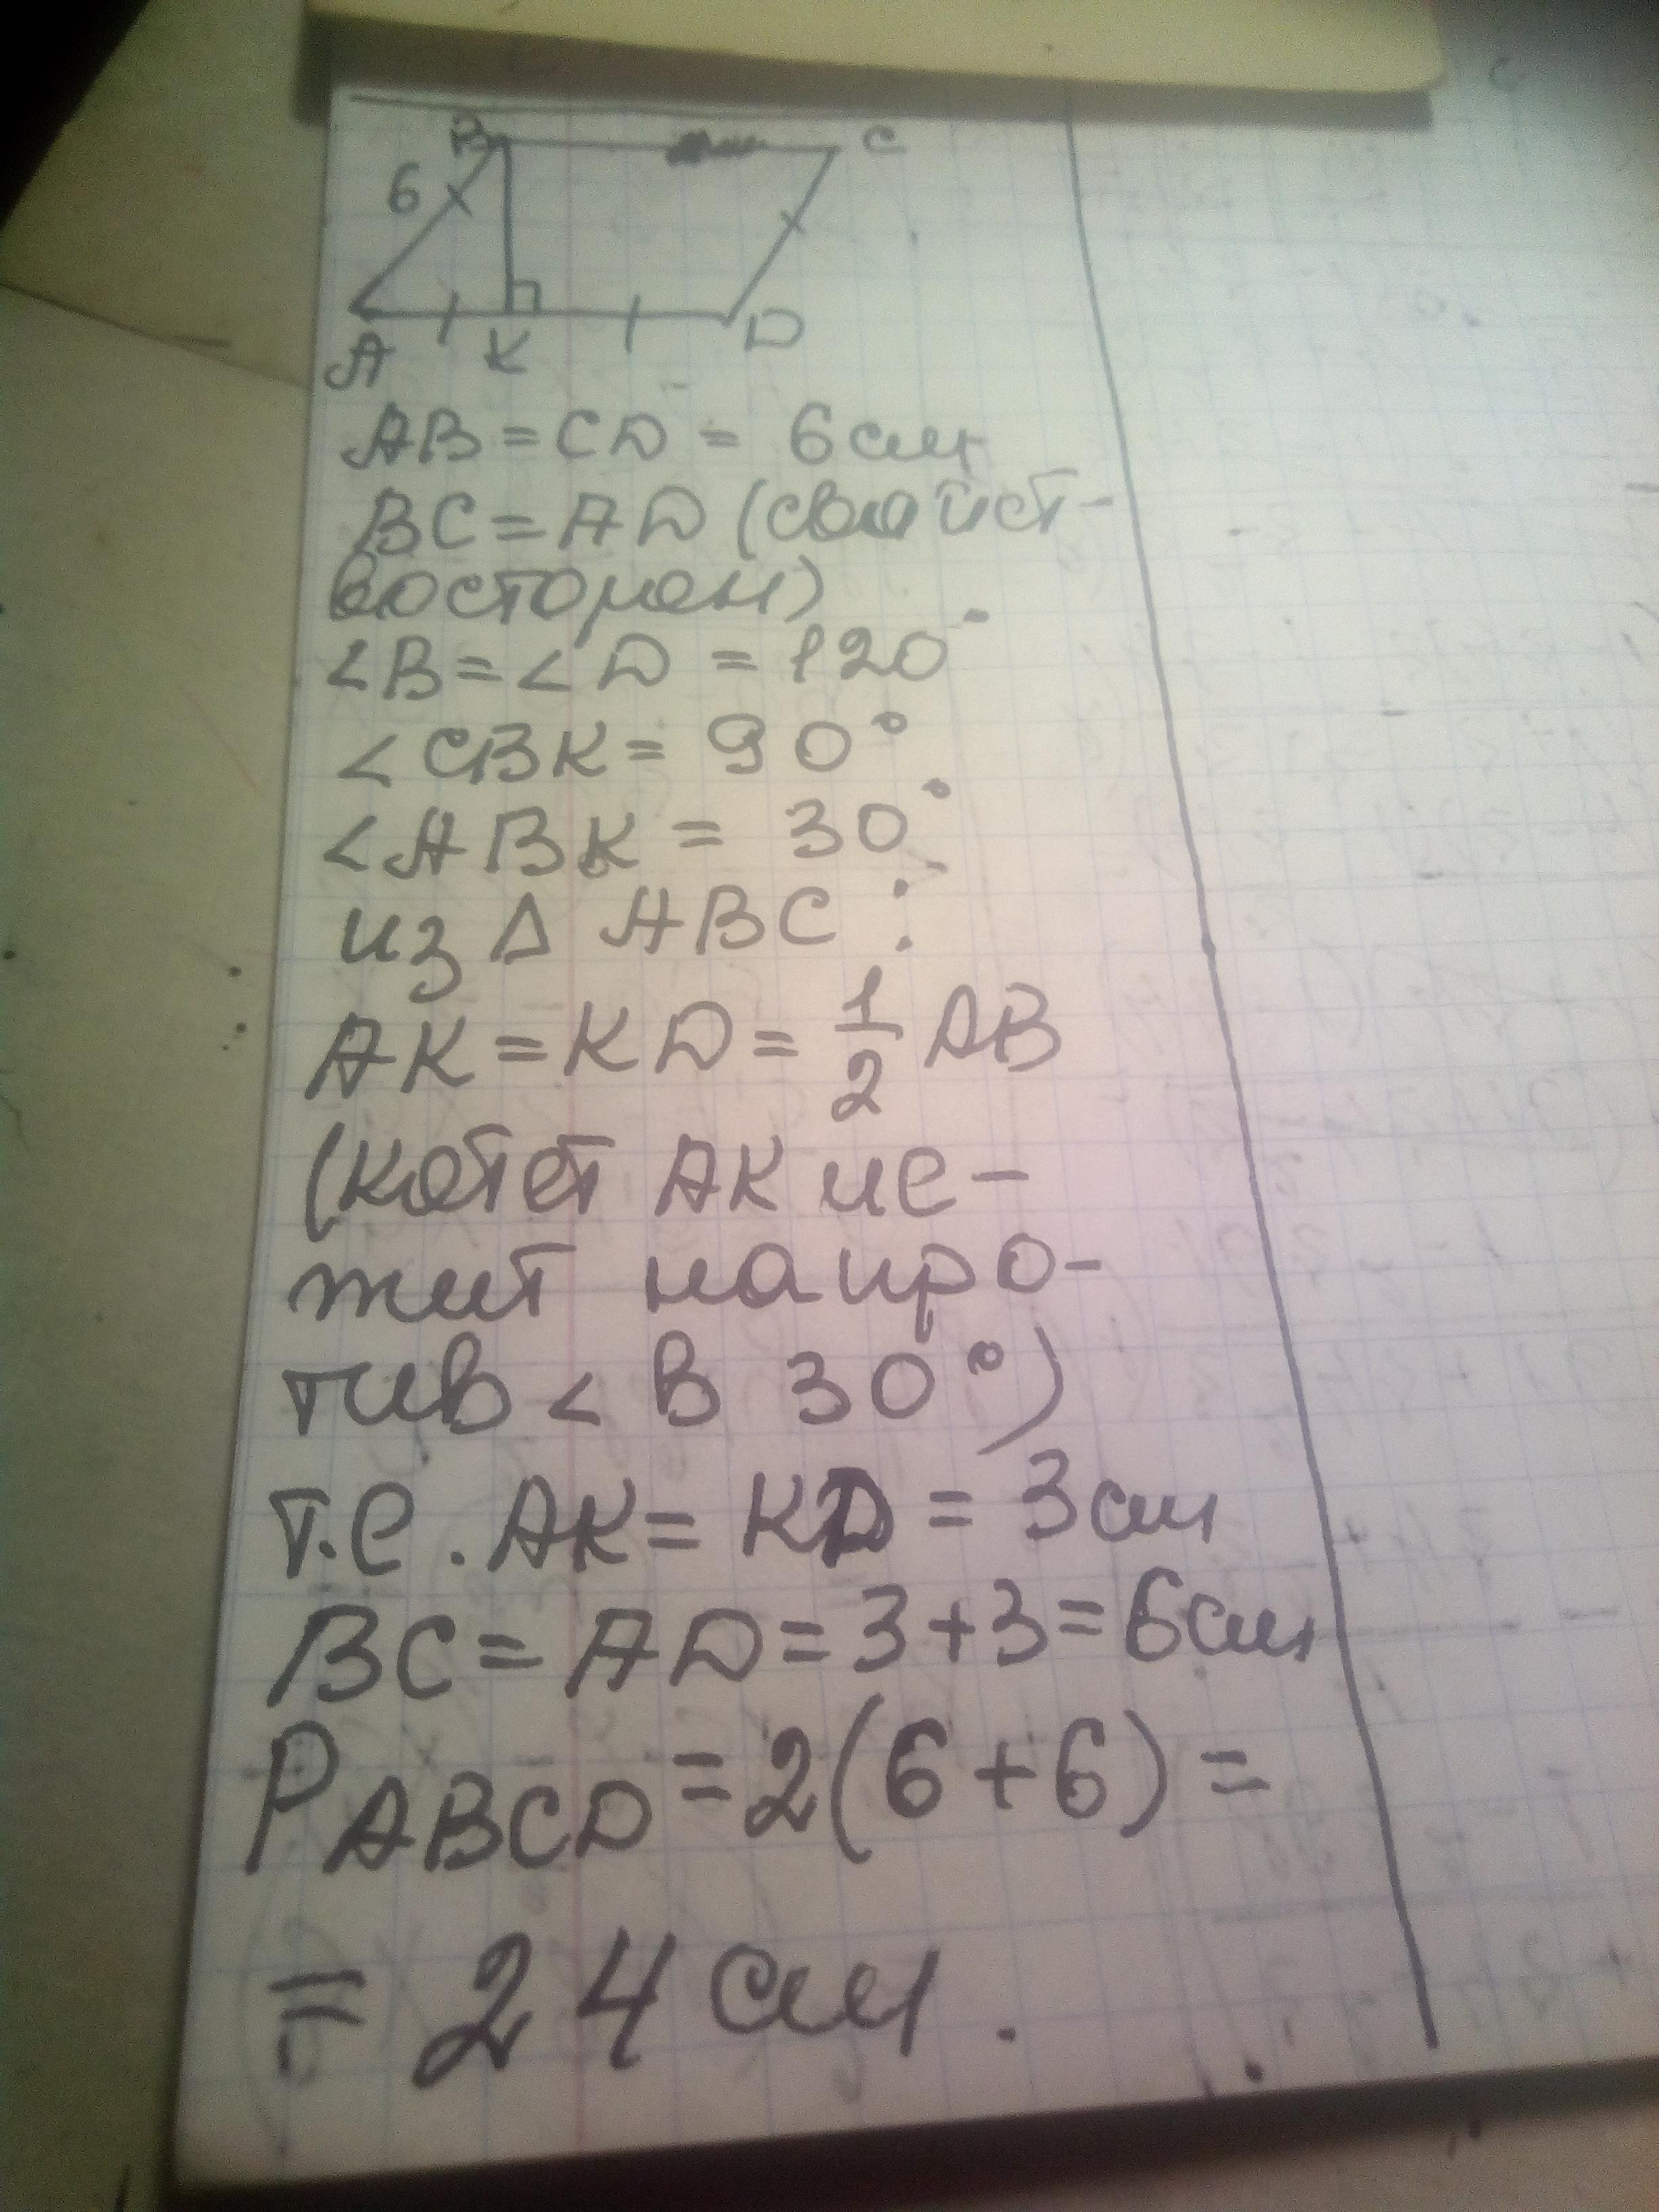 B C
6
A K D
AB = CD = 6 см
BC = AD (свойст-
во сторон)
<B = <D = 120°
<CBK = 90°
<ABK = 30°
из Δ ABC :
AK = KD = 1/2 AB
(катет AK ле-
жит напро-
тив < B 30°)
т.е. AK = KD = 3 см
BC = AD = 3 + 3 = 6 см
P ABCD = 2(6 + 6) =
= 24 см.